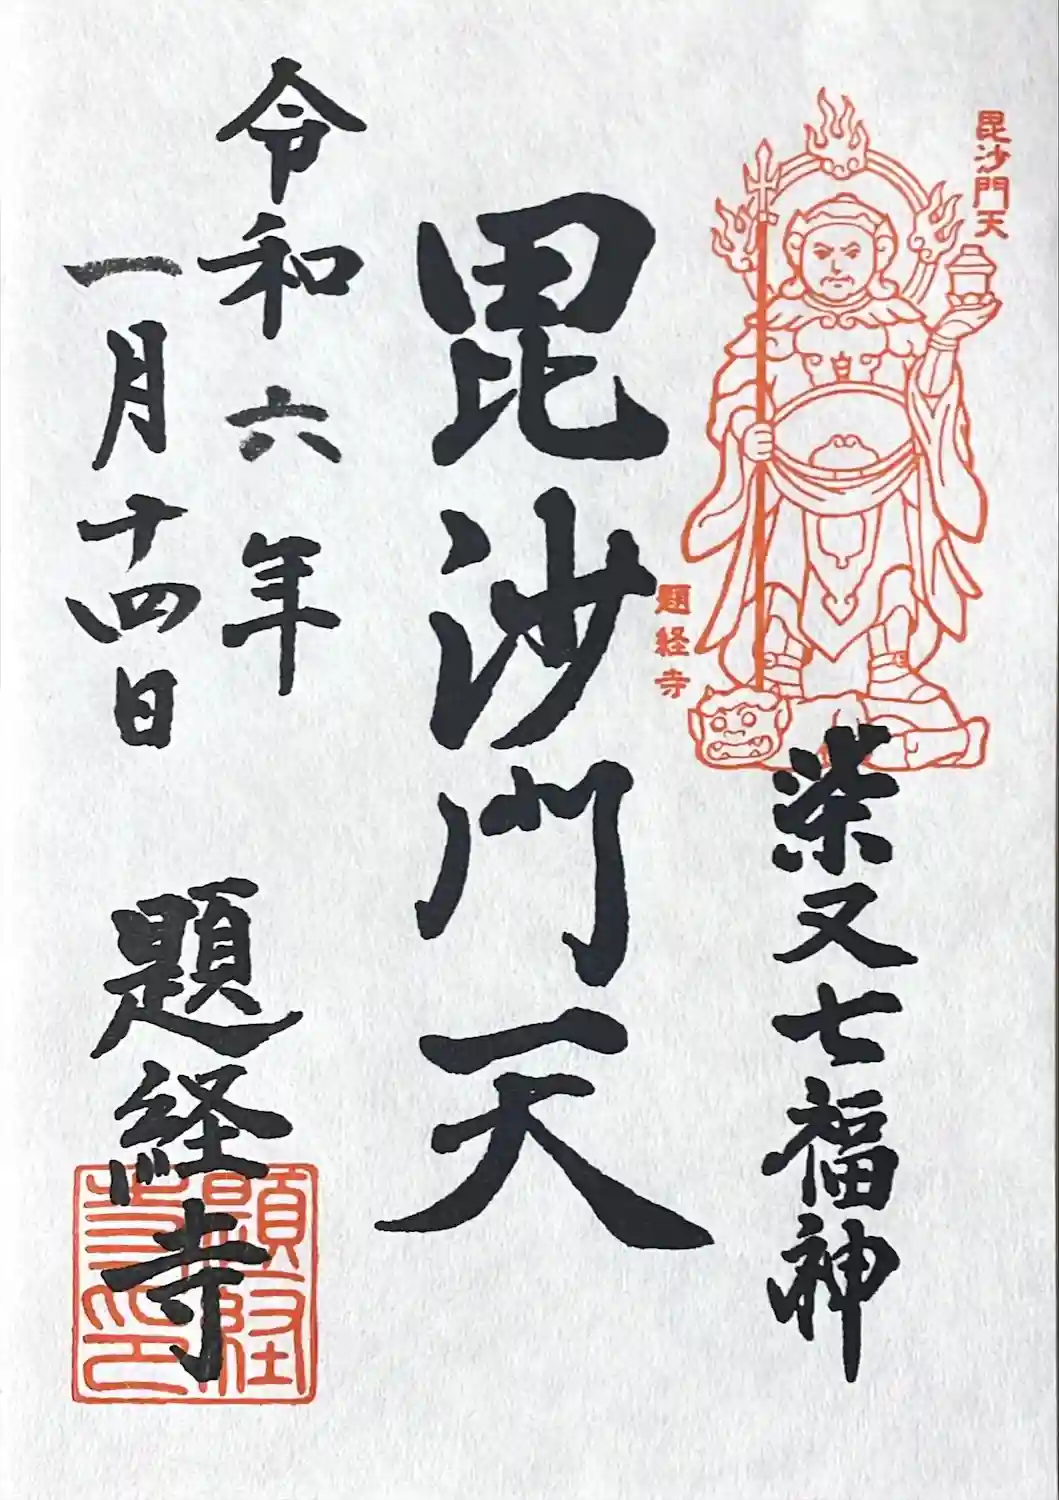 毘沙門天
柴又七福神
題経寺
毘沙門天
令和六年
一月十四日
題経寺
題経寺印